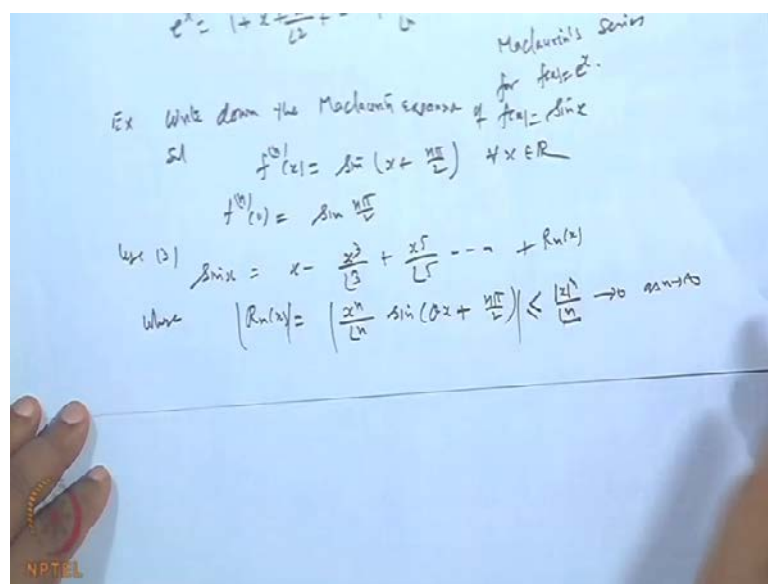 e^x = 1 + x + x^2/⌊2 +
Maclaurin's Series
for f(x) = e^x.
Ex Write down the Maclaurin expansion of f(x) = Sin x
Sol f^(n)(x) = sin (x + nπ/2) ∀ x ∈ R
f^(n)(0) = sin nπ/2
Use (3) Sin x = x - x^3/⌊3 + x^5/⌊5 ---- + Rn(x)
Where |Rn(x)| = |x^n/⌊n sin(θx + nπ/2)| ≤ |x|^n/⌊n → 0 as n→∞
NPTEL